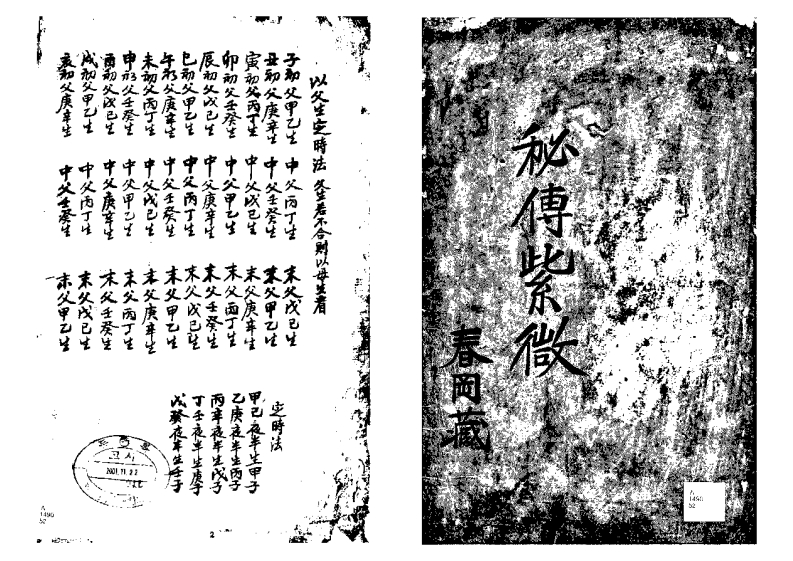 秘傳紫微
春岡藏
A
1490
52
以父生定時法 父生若不合則以母生看
子初父甲乙生 中父丙丁生 末父戊己生
丑初父庚辛生 中父壬癸生 末父甲乙生
寅初父丙丁生 中父戊己生 末父庚辛生
卯初父壬癸生 中父甲乙生 末父丙丁生
辰初父戊己生 中父庚辛生 末父壬癸生
巳初父甲乙生 中父丙丁生 末父戊己生
午初父庚辛生 中父壬癸生 末父甲乙生
未初父丙丁生 中父戊己生 末父庚辛生
申初父壬癸生 中父甲乙生 末父丙丁生
酉初父戊己生 中父庚辛生 末父壬癸生
戌初父甲乙生 中父丙丁生 末父戊己生
亥初父庚辛生 中父壬癸生 末父甲乙生
定時法
甲己夜半生甲子
乙庚夜半生丙子
丙辛夜半生戊子
丁壬夜半生庚子
戊癸夜半生壬子
고시
2001.11.22
A
1490
52
2